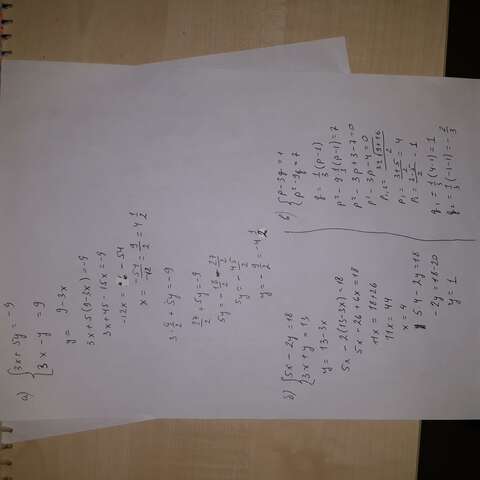 a) { 3x + 5y = -9
{ 3x - y = 9
y = 9 - 3x
3x + 5(9-3x) = -9
3x + 45 - 15x = -9
-12x = - 54
x = -54/-12 = 9/2 = 4 1/2
3·9/2 + 5y = -9
27/2 + 5y = -9
5y = -18/2 - 27/2
5y = -45/2
y = -9/2 = -4 1/2
б) { 5x - 2y = 18
{ 3x + y = 13
y = 13-3x
5x - 2(13-3x) = 18
5x - 26 + 6x = 18
11x = 18+26
11x = 44
x = 4
5·4 - 2y = 18
-2y = 18-20
y = 1
в) { p - 3q = 1
{ p² - 9q = 7
q = 1/3 (p-1)
p² - 9 1/3 (p-1) = 7
p² - 3p + 3 - 7 = 0
p² - 3p - 4 = 0
p₁ = 3+5/2 = 4
q₁ = 1/3 (4-1) = 1
q₂ = 1/3 (-1-1) = -2/3